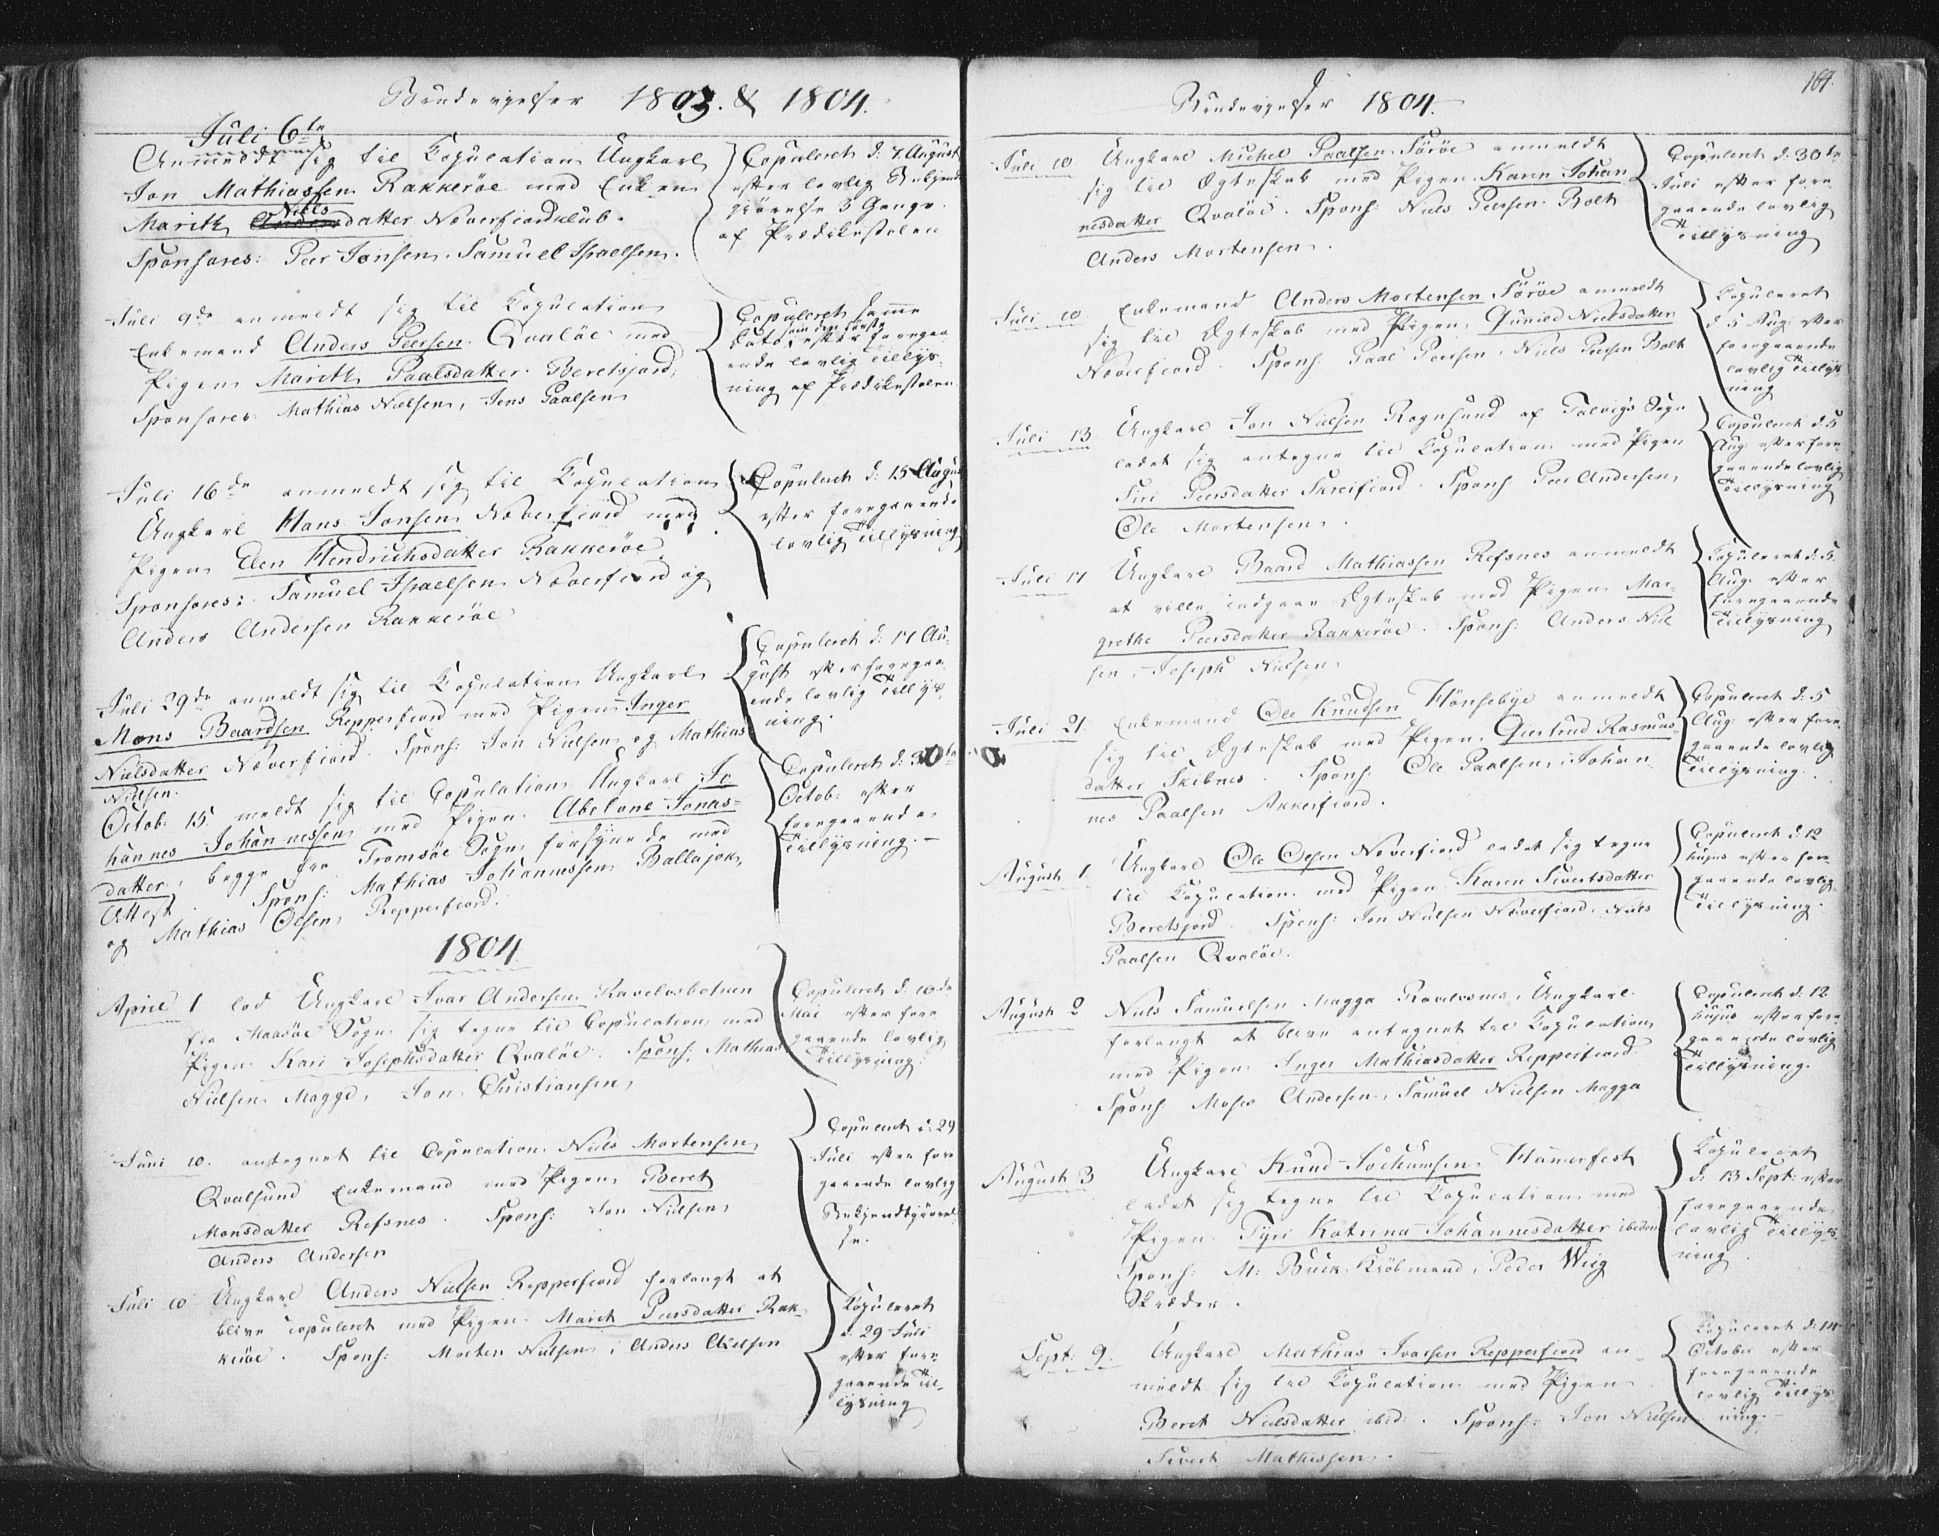 1803. & 1804.
Juli 6te
Anmeldt sig til Copulation Ungkarl
Jon Mathiassen Rakkeröe med Enken
Marith Niels datter Noverfiordklub.
Sponsores: Peer Jonsen. Samuel Isaelsen.
Copuleret d: 7 August
efter lovlig Bekjendt
giörelse 3 Gange
af Prædikestolen
Juli 9de anmeldt sig til Copulation
Enkemand Anders Peersen Qvalöe med
Pigen Marith Paalsdatter Beretsjord,
Sponsores: Mathias Nielsen, Jens Paalsen
Copuleret samme
som den förste
Dato efter foregaa
ende lovlig Tillys-
ning af Prædikestolen
Juli 16de anmeldt sig til Copulation
Ungkarl Hans Jonsen Noverfiord med
Pigen Elen Hendrichsdatter Rakkeröe
Sponsores: Samuel Isaelsen Noverfiord og
Anders Andersen Rakkeröe
Copuleret d: 15 Augus
efter foregaaende
lovlig Tillysning
Juli 29de anmeldt sig til Copulation Ungkarl
Mons Baardsen Repperfiord med Pigen Inger
Nielsdatter Noverfiord Spons: Jon Nielsen og Mathias
Nielsen.
Copuleret d: 17 Au-
gust efter foregaa-
ende lovlig Tillys-
ning.
Octob: 15 meldt sig til Copulation Ungkarl Jo
hannes Johannessen med Pigen Abelone Jonas-
datter, begge fra Tromsöe Sogn forsynede med
Attest. Spons: Mathias Johannessen Ballajok,
og Mathias Olsen Repperfiord.
Copuleret d: 30te
Octob: efter
foregaaende
Tillysning.
1804
April 1 lod Ungkarl Ivar Andersen Ravelvsbotnen
fra Maasöe Sogn sig tegne til Copulation med
Pigen Kari Josephsdatter Qvalöe. Spons, Mathias
Nielsen Magge, Jon Christiansen,
Copuleret d: 10de
Mai efter fore
gaaende lovlig
Tillysning.
Juni 10. antegnet til Copulation Niels Mortensen,
Qvalsund Enkemand med Pigen Beret
Monsdatter Refsnes. Spons: Jon Nielsen
Anders Andersen
Copuleret d: 29
Juli efter fore
gaaende lovlig
Bekjendtgjörel
se.
Juli 10 Ungkarl Anders Nielsen Repperfiord forlangt at
blive copuleret med Pigen Marit Peersdatter Rak-
keröe. Spons: Morten Nielsen, Anders Olelsen
Copuleret
d. 29 Juli
efter fore-
gaaende Til-
lysning
1804.
164.
Juli 10 Ungkarl Michel Paalsen Söröe anmeldt
sig til Ægteskab med Pigen Karen Johan
nesdatter Qvalöe. Spons: Niels Peersen Bolt
Anders Mortensen.
Copuleret d: 30te
Juli efter fore-
gaaende lovlig
Tillysning
Juli 10 Enkemand Anders Mortensen Söröe anmeldt
sig til Ægteskab med Pigen Guniod Nielsdatter
Noverfiord. Spons Paal Peersen, Niels Peersen Bolt
Copuleret
d. 5 Aug: efter
foregaaende
lovlig Tillys-
ning
Juli 13 Ungkarl Jon Nielsen Rognsund af Talvigs Sogn
ladet sig antegne til Copulation med Pigen
Siri Peersdatter Skreifiord. Spons Peer Andersen,
Ole Mortensen.
Copuleret d: 5
Aug: efter fore-
gaaende lovlig
Tillysning
Juli 17 Ungkarl Baard Mathiassen Refsnes anmeldt
at ville indgaae Ægteskab med Pigen Mar-
grethe Peersdatter Rakkeröe. Spons: Anders Niel
sen, Joseph Nielsen
Copuleret d: 5
Aug: efter
foregaaende
Tillysning
Juli 21. Enkemand Ole Knudsen Hönsebye anmeldt
sig til Ægteskab med Pigen Giertrud Rasmus-
datter Skibnes. Spons: Ole Paalsen, Johan-
nes Paalsen Akkerfiord.
Copuleret d: 5
Aug: efter fore-
gaaende lovlig
Tillysning.
August 1. Ungkarl Ole Olsen Noverfiord ladet sig tegne
til Copulation med Pigen Karen Sivertsdatter
Beretsjord. Spons: Jon Nielsen Noverfiord, Niels
Paalsen Qvalöe.
Copuleret d: 12
hujus efter fore
gaaende lovlig
Tillysning.
August 2 Niels Samuelsen Magga Ravelvsnes, Ungkarl
forlangt at blive antegnet til Copulation
med Pigen Inger Mathiasdatter Repperfiord.
Spons Moses Andersen, Samuel Nielsen Magga
Copuleret d: 12
hujus efter fore-
gaaende lovlig
Tillysning.
August 3 Ungkarl Knud Jochumsen Hammerfest
ladet sig tegne til Copulation med
Pigen Tyri Katrina Johannesdatter ibidem
Spons: M: Buck Kröbmand, Peder Wiig
Skræder.
Copuleret
d: 13 Sept: efter
foregaaende
lovlig Tillys-
ning
Sept: 9. Ungkarl Mathias Ivarsen Repperfiord an-
meldt sig til Copulation med Pigen
Beret Nielsdatter ibid:. Spons: Jon Nielsen
Sivert Mathissen.
Copuleret d: 14
October efter
foregaaende
lovlig Tillys-
ning.